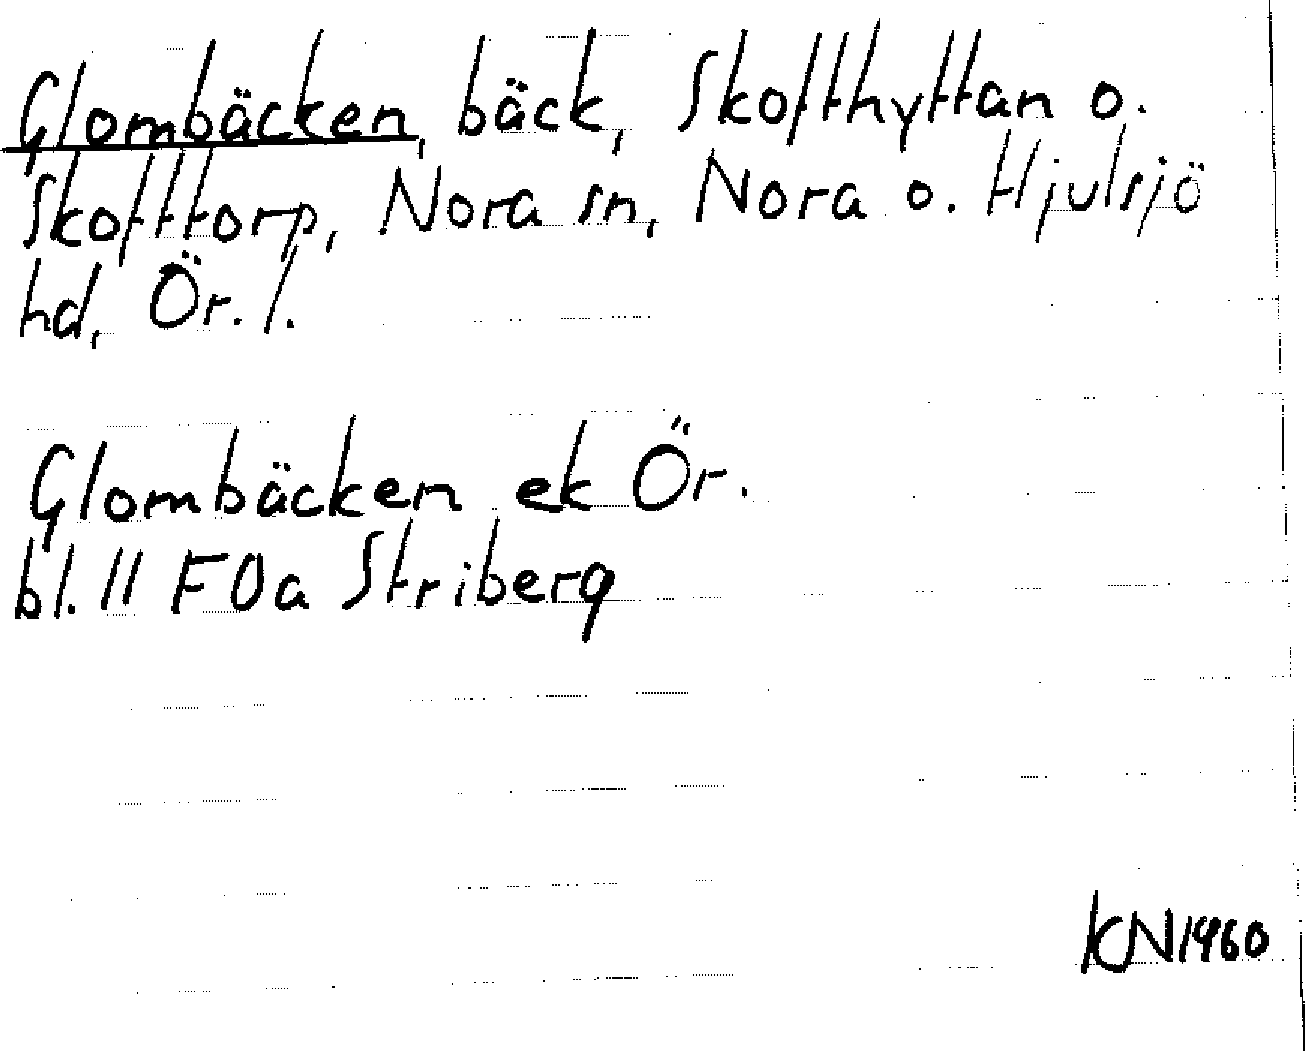 Glombäcken, bäck, Skofthyttan o.
Skofttorp, Nora sn, Nora o. Hjulsjö
hd, Ör. l.
Glombäcken ek Ör.
bl. 11 F0a Striberg
KN1960